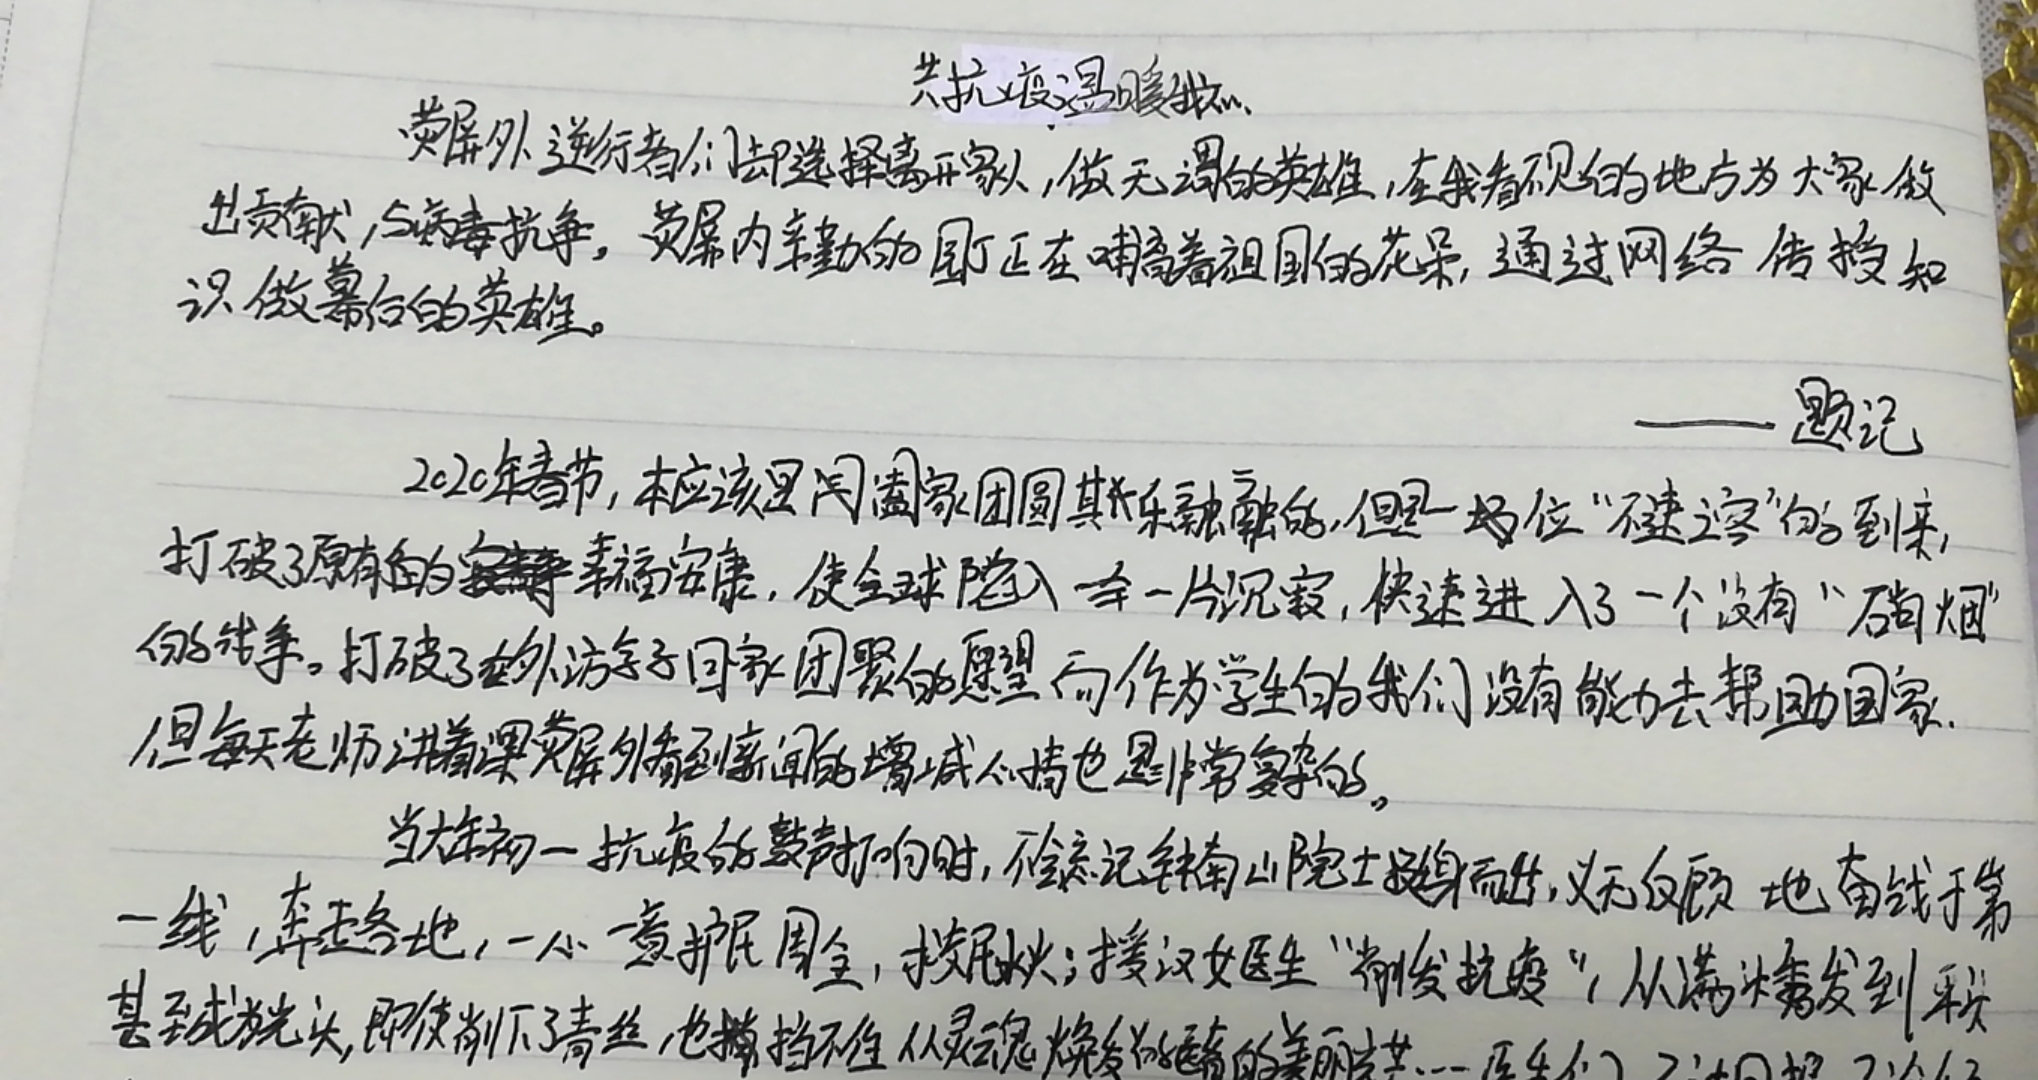 共抗疫温暖我心
荧屏外逆行者们却选择离开家人,做无谓的英雄,在我看不见的地方为大家做
出贡献,与病毒抗争。荧屏内辛勤的园丁正在哺育着祖国的花朵,通过网络传授知
识做幕后的英雄。
——题记
2020年春节,本应该是阖家团圆其乐融融的,但是一位“不速之客”的到来,
打破了原有的幸福安康,使全球陷入一片沉寂,快速进入了一个没有“硝烟”
的战争。打破了在外游子回家团聚的愿望而作为学生的我们没有能力去帮助国家.
但每天老师讲着课荧屏外看到新闻的增减心情也是非常复杂的。
当大年初一抗疫的鼓声打响时,不会忘记钟南山院士挺身而出,义无反顾地奋战于第
一线,奔走各地,一心一意护民周全,救民水火;援汉女医生“削发抗疫”,从满头秀发到平头
甚至成为光头,即使削下了青丝,也挡不住从灵魂焕发的美丽光芒...医生们